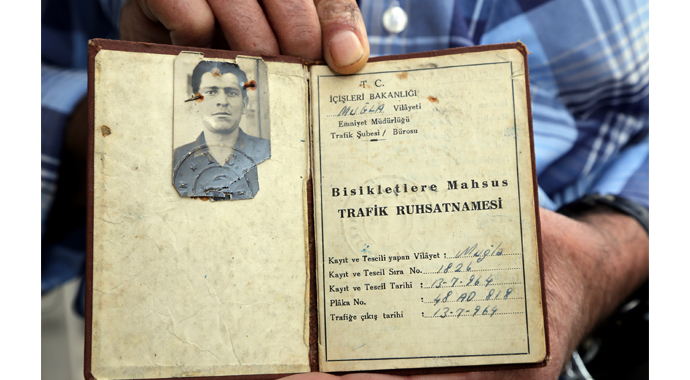 T. C.
İÇİŞLERİ BAKANLIĞI
MUĞLA Vilâyeti
Emniyet Müdürlüğü
Trafik Şubesi / Bürosu
Bisikletlere Mahsus
TRAFİK RUHSATNAMESİ
Kayıt ve Tescili yapan Vilâyet : Muğla
Kayıt ve Tescil Sıra No. : 1826
Kayıt ve Tescil Tarihi : 13-7-964
Plâka No. : 48 AD 818
Trafiğe çıkış tarihi : 13-7-964